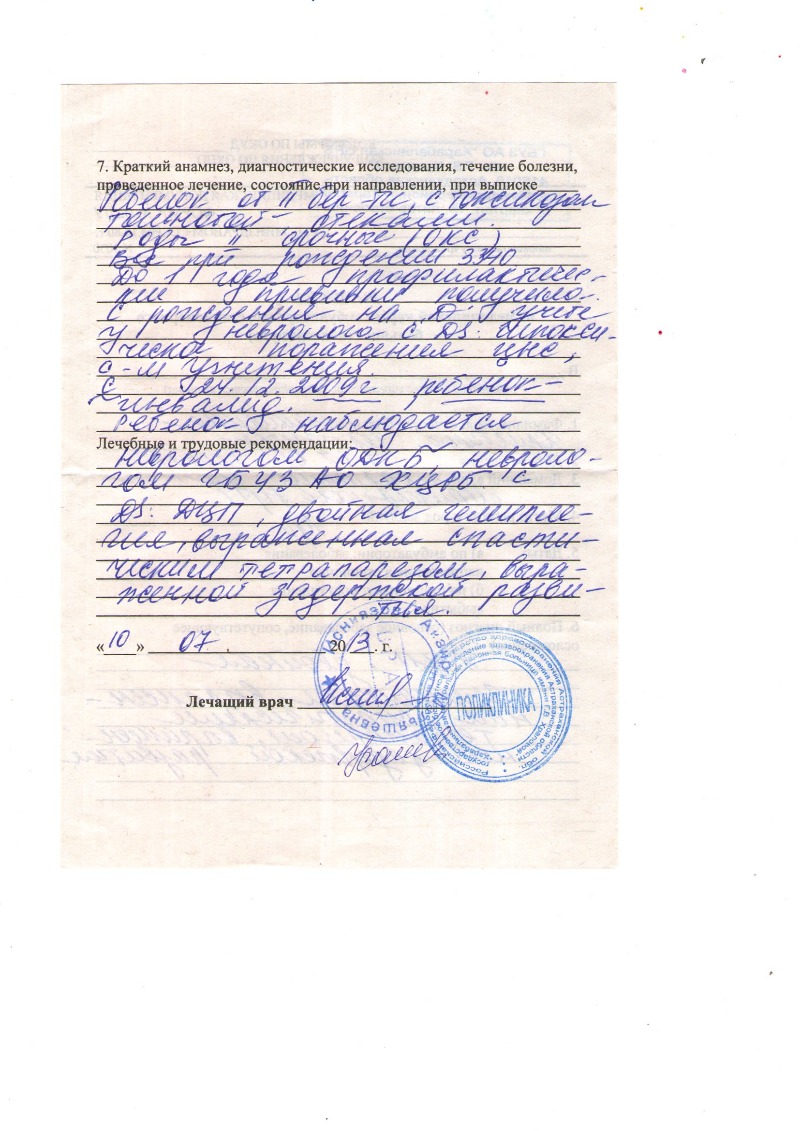 7. Краткий анамнез, диагностические исследования, течение болезни,
проведенное лечение, состояние при направлении, при выписке
Ребенок от II бер-ти, с токсикозом
тошнотой, отеками.
Роды II срочные (ОКС)
Вес при рождении 3740
До 1 года профилактичес-
кие прививки получила.
С рождения на "Д" учете
у невролога с DS: Гипокси-
ческое поражение ЦНС,
с-м угнетения
С 24.12.2009г ребенок-
инвалид.
Ребенок наблюдается
Лечебные и трудовые рекомендации:
неврологом ОДКБ, невроло-
гом ГБУЗ АО ХЦРБ с
DS: ДЦП, двойная гемипле-
гия, выраженная спасти-
ческим тетрапарезом, выра-
женной задержкой разви-
тия.
«10» 07 2013. г.
Лечащий врач
ПОЛИКЛИНИКА